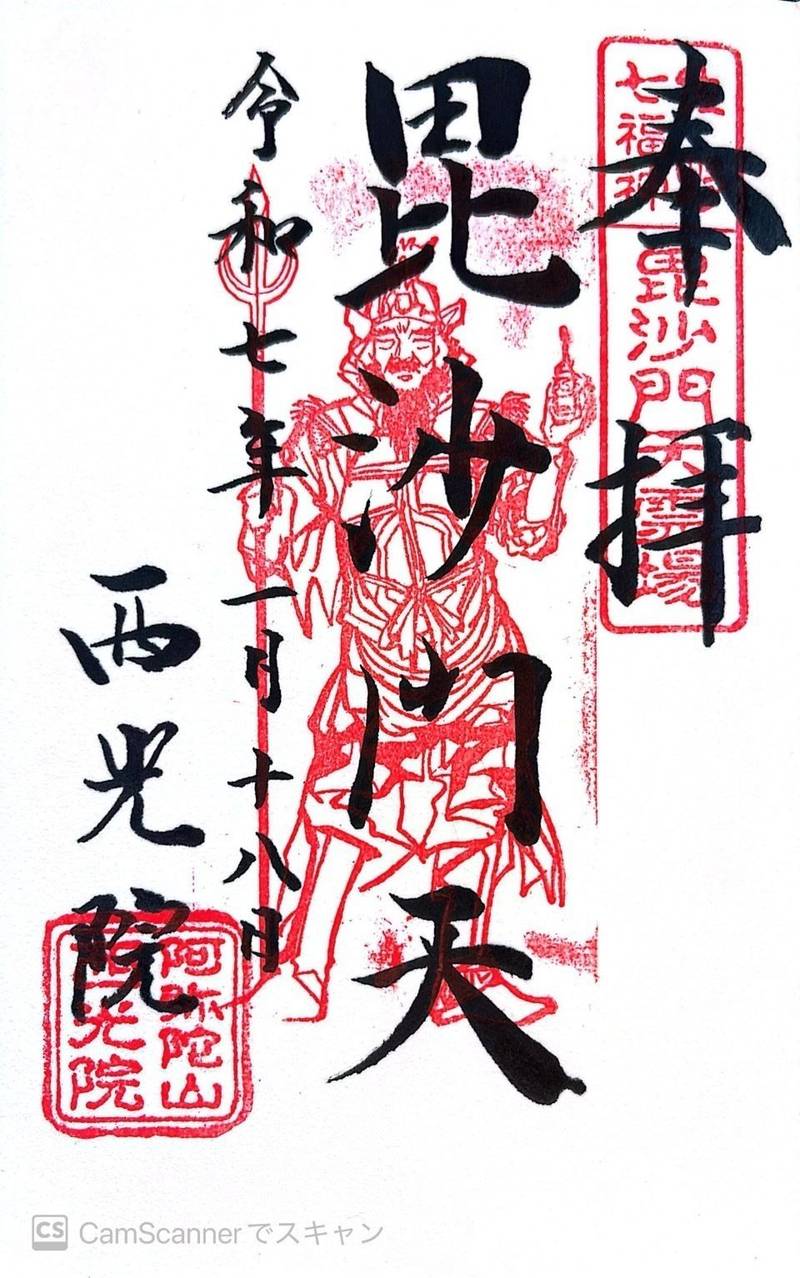 奉拝
七福神
毘沙門天霊場
毘沙門天
令和七年一月十八日
西光院
阿弥陀山
西光院
CS CamScannerでスキャン